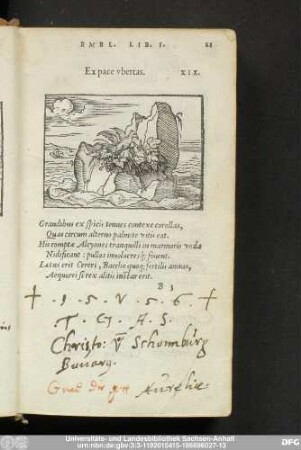 EMBL. LIB. I.
Ex pace vbertas. XIX.
Grandibus ex spicis tenues contexe corollas,
Quas circum alterno palmite vitis eat.
His comptæ Alcyones tranquilli in marmoris vnda
Nidificant: pullos inuolucresq; fouent.
Lætus erit Cereri, Baccho quoq; fertilis annus,
Aequorei si rex alitis instar erit.
B 3
+ . 1 . 5 . V . 5 . 6 . +
Christo: V Schomburg
Universitäts- und Landesbibliothek Sachsen-Anhalt
urn:nbn:de:gbv:3:3-1192015415-186696027-13
DFG